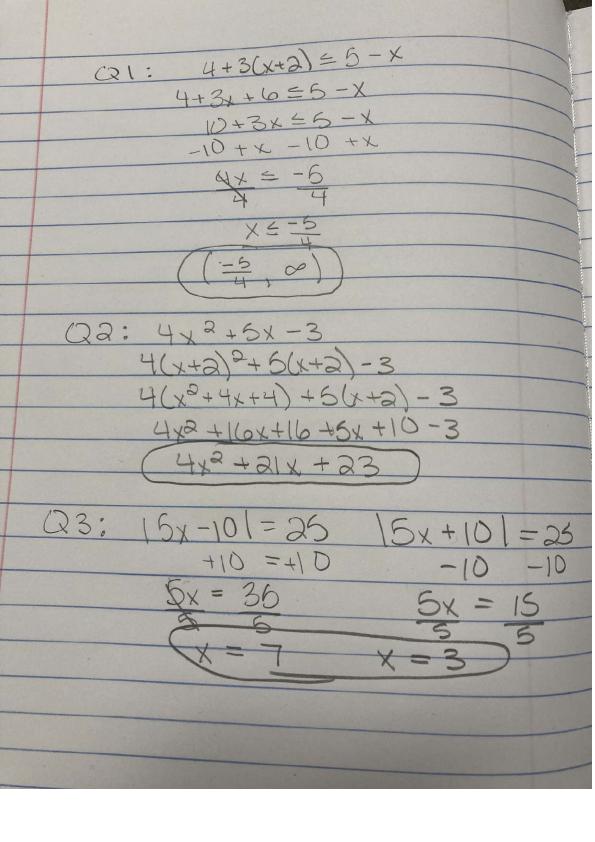 Q1: 4+3(x+2) ≤ 5 - x
4+3x+6 ≤ 5 - x
10+3x ≤ 5 - x
-10 + x - 10 + x
4x/4 ≤ -5/4
x ≤ -5/4
(-5/4, ∞)
Q2: 4x² + 5x - 3
4(x+2)² + 5(x+2) - 3
4(x²+4x+4) + 5(x+2) - 3
4x² + 16x + 16 + 5x + 10 - 3
4x² + 21x + 23
Q3: |5x - 10| = 25 |5x + 10| = 25
+10 = +10 -10 -10
5x/5 = 35/5 5x/5 = 15/5
x = 7 x = 3